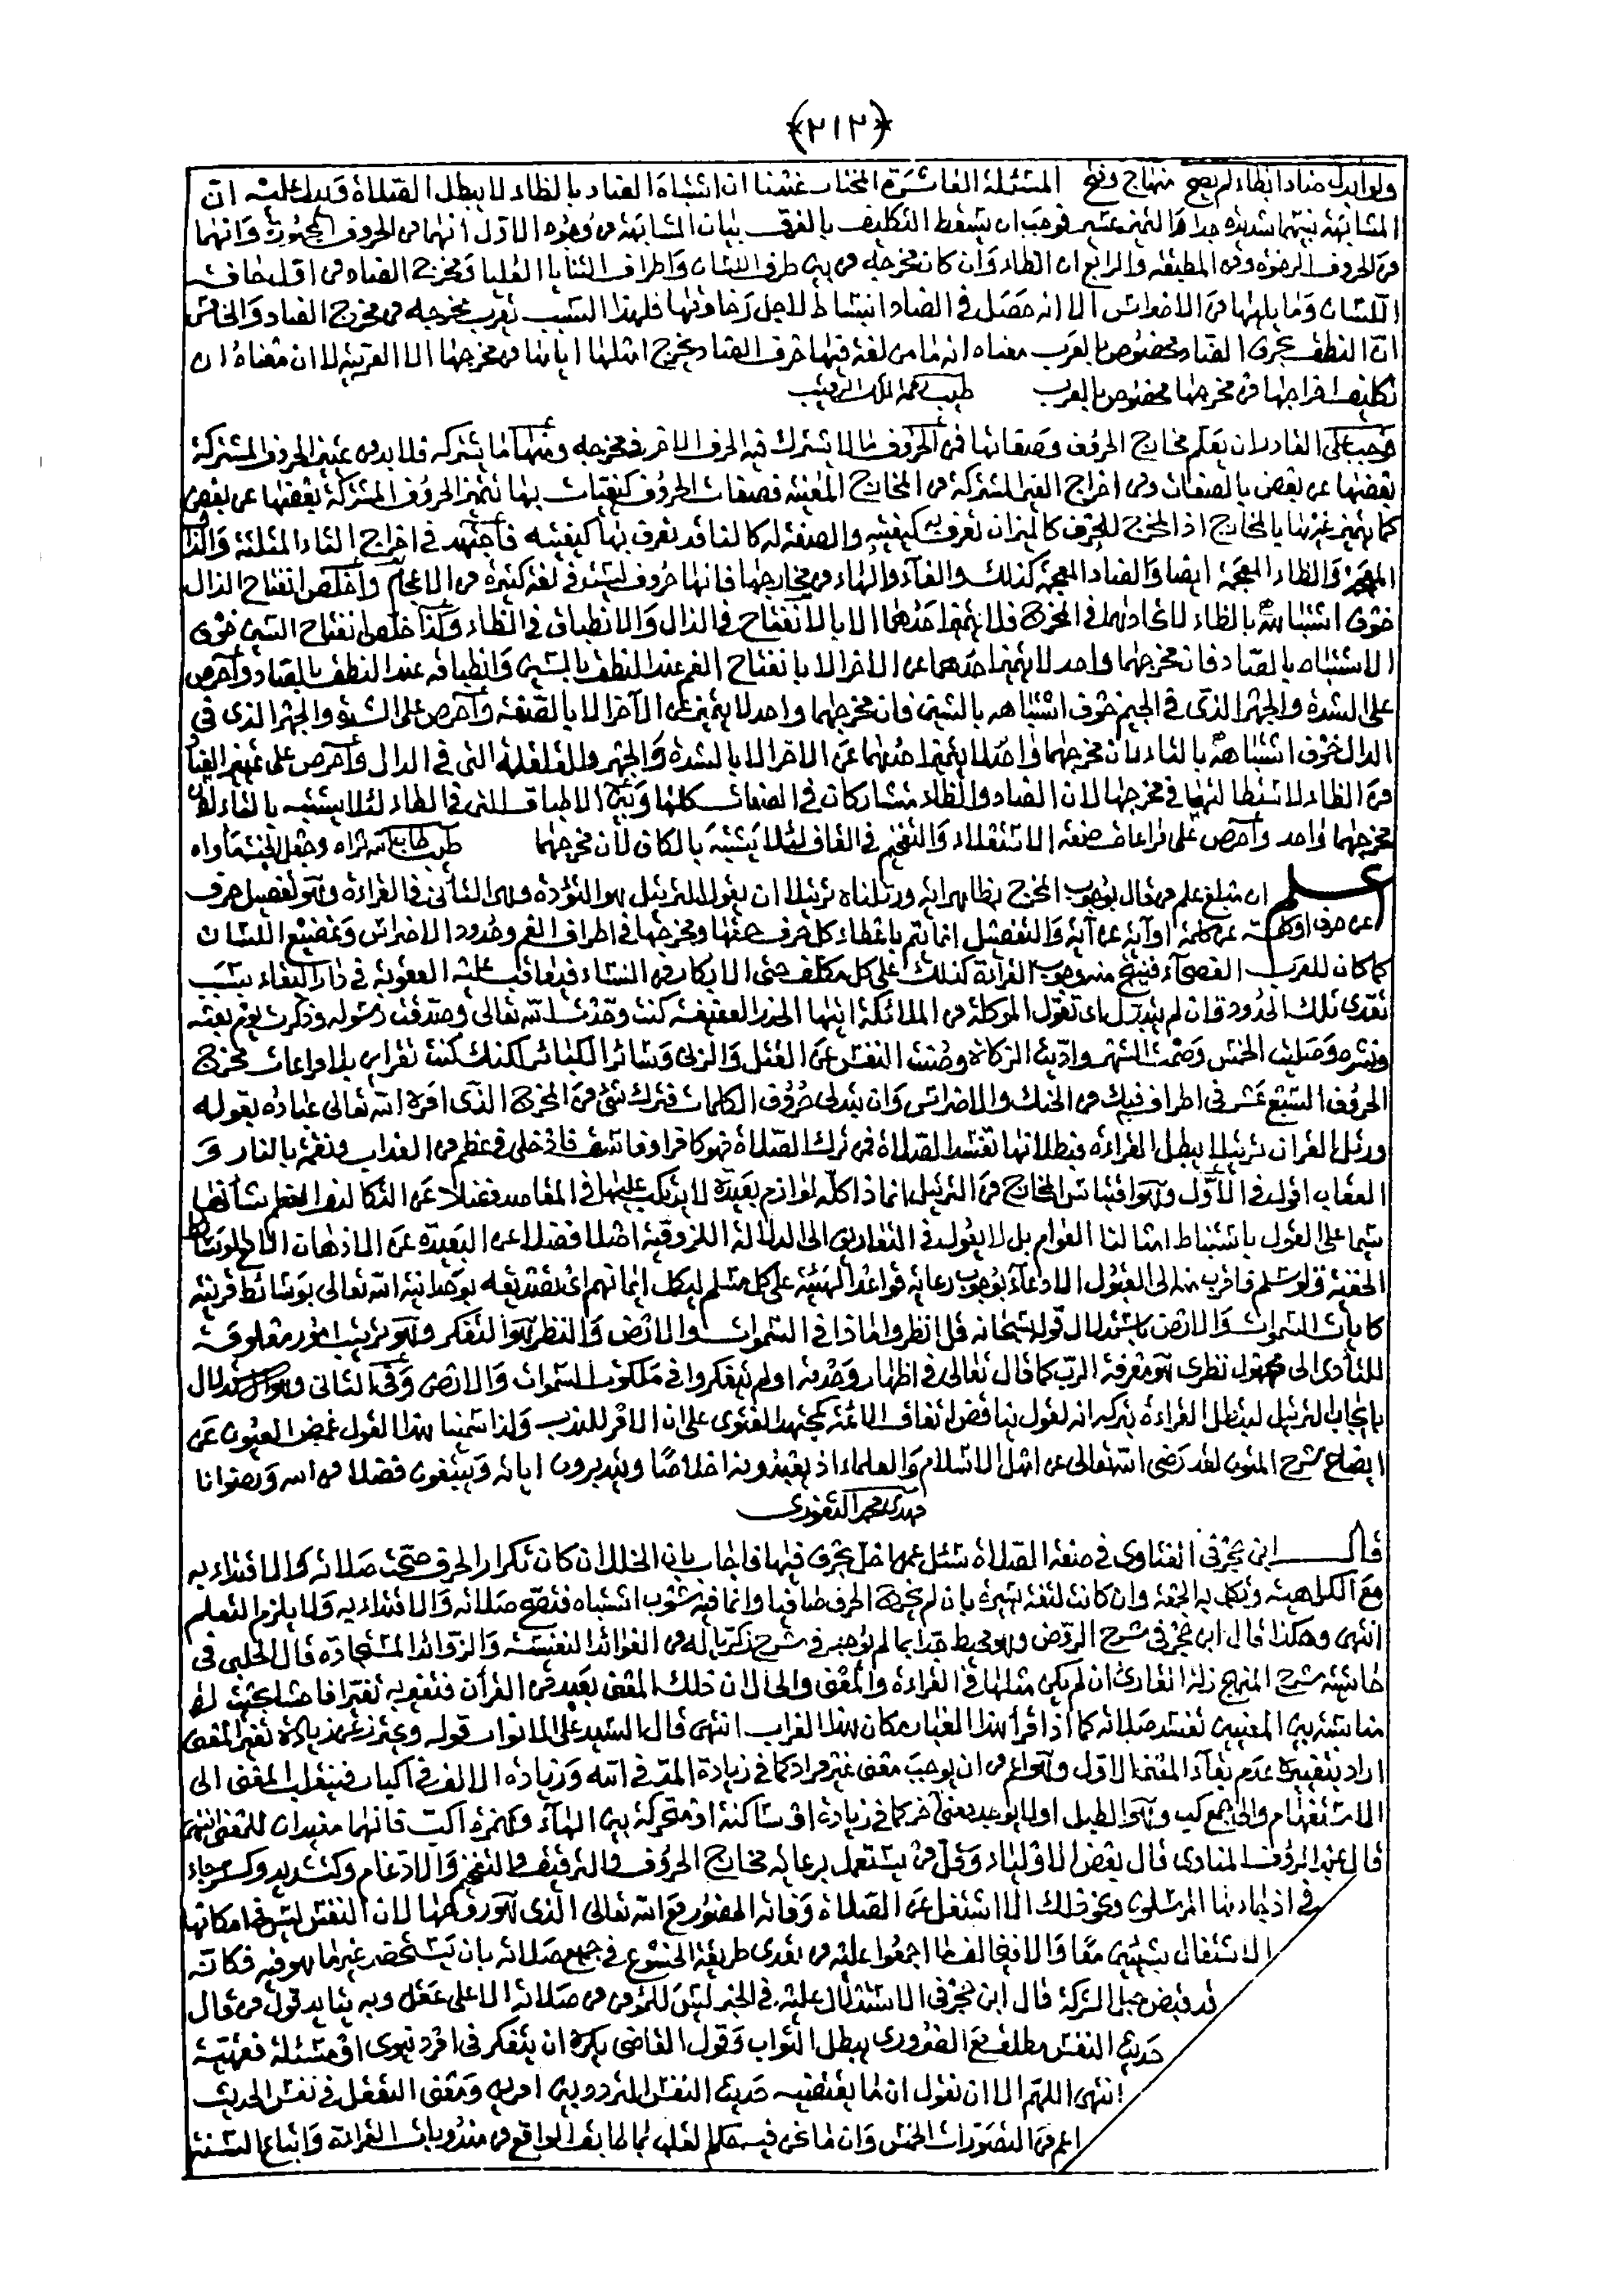 ﴿٢١٢﴾
ولو ابدل ضادا بظاء لم يصح منهاج وفتح المسئلة العاشرة المختار عندنا ان اشتباه الضاد بالظاء لا يبطل الصلاة ويدل عليه ان
المشابهة بينهما شديدة جدا والتميز عسير فوجب ان يسقط التكليف بالفرق بيان المشابهة من وجوه الاول انهما من الحروف المجهورة وانهما
من الحروف الرخوة ومن المطبقة والرابع ان الظاء وان كان مخرجه من بين طرف اللسان واطراف الثنايا العليا ومخرج الضاد من اول حافة
اللسان وما يليها من الاضراس الا انه حصل في الضاد انبساط لاجل رخاوتها فلهذا السبب يقرب مخرجه من مخرج الضاد والخامس
ان النطق بحرف الضاد مخصوص بالعرب معناه انه ما من لغة فيها حرف الضاد يخرج اهلها اياها من مخرجها الا العربية لا ان معناه ان
تكليف اخراجها من مخرجها مخصوص بالعرب
وجب على القادر ان يعلم مخارج الحروف وصفاتها فمن الحروف ما لا يشترك فيه الحرف الآخر في مخرجه ومنها ما يشترك فلا بد من تمييز الحروف المشتركة
بعضها عن بعض بالصفات ومن اخراج الغير المشتركة من المخارج المعينة فصفات الحروف كيفيات بها تتميز الحروف المشتركة بعضها عن بعض
كما يتميز غيرها بالمخارج اذ المخرج للحرف كالميزان تعرف به كيفيته والصفة له كالناقد تعرف بها كيفيته فاجتهد في اخراج الثاء المثلثة والذال
المعجمة والظاء المعجمة ايضا والضاد المعجمة كذلك والعاء والهاء من مخارجها فانها حروف ليست في لغة كثيرة من الاعجام واخلص انفتاح الذال
خوف اشتباهه بالظاء لاتحادهما في المخرج فلا يتميز احدهما الا بالانفتاح في الذال والانطباق في الظاء وكذا خلص انفتاح السين خوف
الاشتباه بالصاد فان مخرجهما واحد لا يتميز احدهما عن الآخر الا بانفتاح الفم عند النطق بالسين وانطباقه عند النطق بالصاد واحرص
على الشدة والجهر الذي في الجيم خوف اشتباهه بالشين فان مخرجهما واحد لا يتميز عن الآخر الا بالصفة واحرص على الشدة والجهر الذي في
الدال خوف اشتباهه بالتاء بان مخرجهما واحد لا يتميز احدهما عن الآخر الا بالشدة والجهر والقلقلة التي في الدال واحرص على تمييز الضاد
من الظاء لاستطالتها في مخرجها لان الضاد والظاء متشاركان في الصفات كلها وبين الاطباق التي في الطاء لئلا يشتبه بالتاء لان
مخرجهما واحد واحرص على مراعات صفة الاستعلاء والتفخيم في القاف لئلا يشتبه بالكاف لان مخرجهما طيب الله ثراه وجعل الجنة مأواه
اعلم ان مبلغ علم من قال بوجوب المخرج بظاهر آية ورتلناه ترتيلا ان يقول الترتيل هو التؤدة وهي التأني في القراءة وهو تفصيل حرف
عن حرف او كلمة عن كلمة او آية عن آية والتفصيل انما يتم باعطاء كل حرف حقها ومخرجها في اطراف الفم وحدود الاضراس وتمضيغ اللسان
كما كان للعرب الفصحاء فينتج منه وجوب القراءة كذلك على كل مكلف حتى الابكار من النساء فيعاقب عليه العقوبة في دار البقاء بسبب
تعدي تلك الحدود فان لم يتبدل اي تقول الموكلة من الملائكة ايتها الخدر العفيفة كنت وحدت الله تعالى وصدقت رسوله وذكرت يوم بعثه
ونشره وصليت الخمس وصمت الشهر واديت الزكاة وصنت النفس عن القتل والزنى وسائر الكبائر لكنك كنت تقرأين بلا مراعات مخرج
الحروف السبع عشر في اطراف فيك من الحنك والاضراس وان يبدل حروف الكلمات فترك شئ من المخرج الذي امره الله تعالى عباده بقوله
ورتل القرآن ترتيلا يبطل القراءة فبطلانها تفسد الصلاة فمن ترك الصلاة فهو كافر او فاسق فادخلي في عظم من العذاب ونقمة بالنار و
العقاب اقول في الاول وهو اقتباس المخارج من الترتيل انما ذا كله لوازم بعيدة لا يرتكب عليها في المقاصد فضلا عن التكاليف
سيما على القول باستنباط امثالنا العوام بل لا يقول في التعاريف الى الدلالة اللزومية اصلا فضلا عن البعيدة عن الاذهان
الخفية ولو سلم فاقرب منه الى القبول الادعاء بوجوب رعاية قواعد الهيئة على كل مسلم ليكمل ايمانهم اي تصديقه بوحدانية الله تعالى بوسائط قريبة
كآيات السموات والارض باستدلال قوله سبحانه قل انظروا ماذا في السموات والارض والنظر هو التفكر وهو ترتيب امور معلومة
للتأدي الى مجهول نظري هو معرفة الرب كما قال تعالى في اظهار وحدته اولم يتفكروا في ملكوت السموات والارض وفي الثاني وهو الاستدلال
بايجاب الترتيل ليبطل القراءة بتركه انه لقول يناقض اتفاق الائمة كمجتهد الفتوى على ان الامر للندب ولذا سمينا هذا القول غمض العيون عن
ايضاح شرح المتون لقد رضي الله تعالى عن اهل الاسلام والعلماء اذ يعبدونه اخلاصا ويتدبرون آياته ويبتغون فضلا من الله ورضوانا
مهدي محمد الثغوري
قال ابن حجر في الفتاوى في صفة الصلاة سئل عمن اخل بحرف فيها فاجاب بان الخلل ان كان تكرار الحرف صحت صلاته والاقتداء به
مع الكراهية وتكمل به الجمعة وان كانت لثغة يسيرة بان لم يخرج الحرف صافيا وانما فيه شوب اشتباه فتصح صلاته والاقتداء به ولا يلزم التعلم
انتهى وهكذا قال ابن حجر في شرح الروض وهو محيط جدا بما لم يوجد في شرح زكريا له من الفوائد النفيسة والزوائد المستجادة قال الحلبي في
حاشية شرح المنهج زلة القارئ ان لم يكن مثلها في القراءة والمعنى والحال ان ذلك المعنى بعيد من القرآن فتغير به تغيرا فاحشا بحيث لا
مناسبة بين المعنيين تفسد صلاته كما اذا قرأ هذا الغبار مكان هذا الغراب انتهى قال السيد علي المانواب قوله ويحترز عن زيادة تغير المعنى
اراد بتغييره عدم بقاء المعنى الاول وهو اعم من ان يوجب معنى غير مراد كما في زيادة المد في الله وزيادة الالف في اكبار فينقلب المعنى الى
الاستفهام والى جمع كبر وهو الطبل اولا يوجد معنى آخر كما في زيادة واو ساكنة او متحركة بين الهاء وهمزة اكبر فانهما مغيران للمعنى انتهى
قال عبد الرؤف المناوى قال بعض الاولياء وقل من يشتغل برعاية مخارج الحروف والترقيق والتفخيم والادغام وكتشديد وكسر جاء
في اذ جاءها المرسلون ونحو ذلك الا اشتغل عن الصلاة وفاته الحضور مع الله تعالى الذي هو روحها لان النفس ليس في امكانها
الاشتغال بشيئين معا والا فيخالف ما اجمعوا عليه من تعدي طريقة الخشوع في جميع صلاته بان يستحضر غير ما هو فيه فكانه
قد قبض حبل الشركة قال ابن حجر في الاستدلال عليه في الخبر ليس للمؤمن من صلاته الا على عقل وبه يتأيد قول من قال
حديث النفس مطلقا مع الضروري يبطل الثواب وقول القاضي يكره ان يتفكر في امر دنيوي او مسئلة فقهية
انتهى اللهم الا ان نقول ان ما يقتضيه حديث النفس التردد بين امرين ومعنى التعقل في نفس الحديث
اعم من التصورات الخمس وان ما نحن فيه حكم لعلها لما طابقه الواقع من مندوبات القراءة واتباع السنة